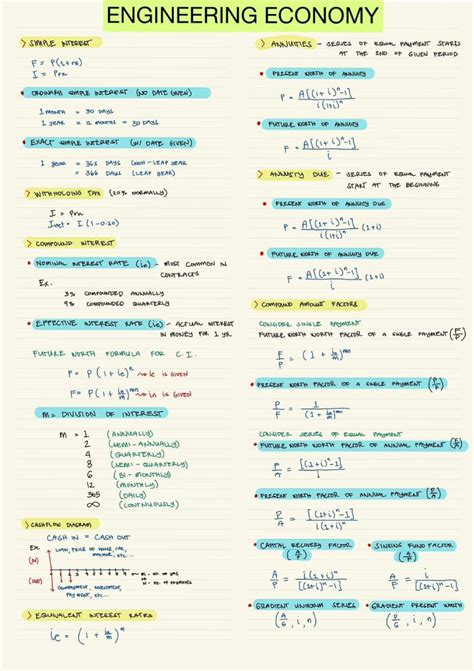 ENGINEERING ECONOMY
> SIMPLE INTEREST
F = P(1+rn)
I = Prn
• ORDINARY SIMPLE INTEREST (NO DATE GIVEN)
1 MONTH = 30 DAYS
1 YEAR = 12 MONTHS = 30 DAYS
• EXACT SIMPLE INTEREST (W/ DATE GIVEN)
1 YEAR = 365 DAYS (NON-LEAP YEAR
= 366 DAYS (LEAP YEAR)
> WITHHOLDING TAX (20% NORMALLY)
I = Prn
Inet = I (1-0.20)
> COMPOUND INTEREST
• NOMINAL INTEREST RATE (in) - MOST COMMON IN
CONTRACTS
EX.
3% COMPOUNDED ANNUALLY
9% COMPOUNDED QUARTERLY
• EFFECTIVE INTEREST RATE (ie) - ACTUAL INTEREST
IN MONEY FOR 1 YR.
FUTURE WORTH FORMULA FOR C.I.
F = P(1+ie)^n → ie IS GIVEN
F = P(1+in/m)^mn → in IS GIVEN
M = DIVISION OF INTEREST
M = 1 (ANNUALLY)
2 (SEMI-ANNUALLY)
4 (QUARTERLY)
8 (SEMI-QUARTERLY)
6 (BI-MONTHLY)
12 (MONTHLY)
365 (DAILY)
∞ (CONTINUOUSLY)
> CASHFLOW DIAGRAM
CASH IN = CASH OUT
EX.
LOAN, PRICE OF HOUSE, CAR,
MACHINE, ETC...
(IN)
(OUT)
DOWNPAYMENT, INVESTMENT,
PAYMENT, ETC...
> EQUIVALENT INTEREST RATES
ie = (1 + in/m)^m
> ANNUITIES - SERIES OF EQUAL PAYMENT STARTS
AT THE END OF GIVEN PERIOD
• PRESENT WORTH OF ANNUITY
P = A[(1+i)^n-1] / i(1+i)^n
• FUTURE WORTH OF ANNUITY
F = A[(1+i)^n-1] / i
> ANNUITY DUE - SERIES OF EQUAL PAYMENT
START AT THE BEGINNING
• PRESENT WORTH OF ANNUITY DUE
P = A[(1+i)^n-1] / i(1+i)^n (1+i)
• FUTURE WORTH OF ANNUITY DUE
F = A[(1+i)^n-1] / i (1+i)
> COMPOUND AMOUNT FACTORS
CONSIDER SINGLE PAYMENT
FUTURE WORTH FACTOR OF A SINGLE PAYMENT (F/P)
F/P = (1 + in/m)^mn
• PRESENT WORTH FACTOR OF A SINGLE PAYMENT (P/F)
P/F = 1 / (1+in/m)^mn
CONSIDER SERIES OF EQUAL PAYMENT
• FUTURE WORTH FACTOR OF ANNUAL PAYMENT (F/A)
F/A = [(1+i)^n-1] / i
• PRESENT WORTH FACTOR OF ANNUAL PAYMENT (P/A)
P/A = [(1+i)^n-1] / i(1+i)^n
• CAPITAL RECOVERY FACTOR (A/P)
A/P = i(1+i)^n / [(1+i)^n-1]
• SINKING FUND FACTOR (A/F)
A/F = i / [(1+i)^n-1]
• GRADIENT UNIFORM SERIES
(A/G, i, n)
• GRADIENT PRESENT WORTH
(P/G, i, n)